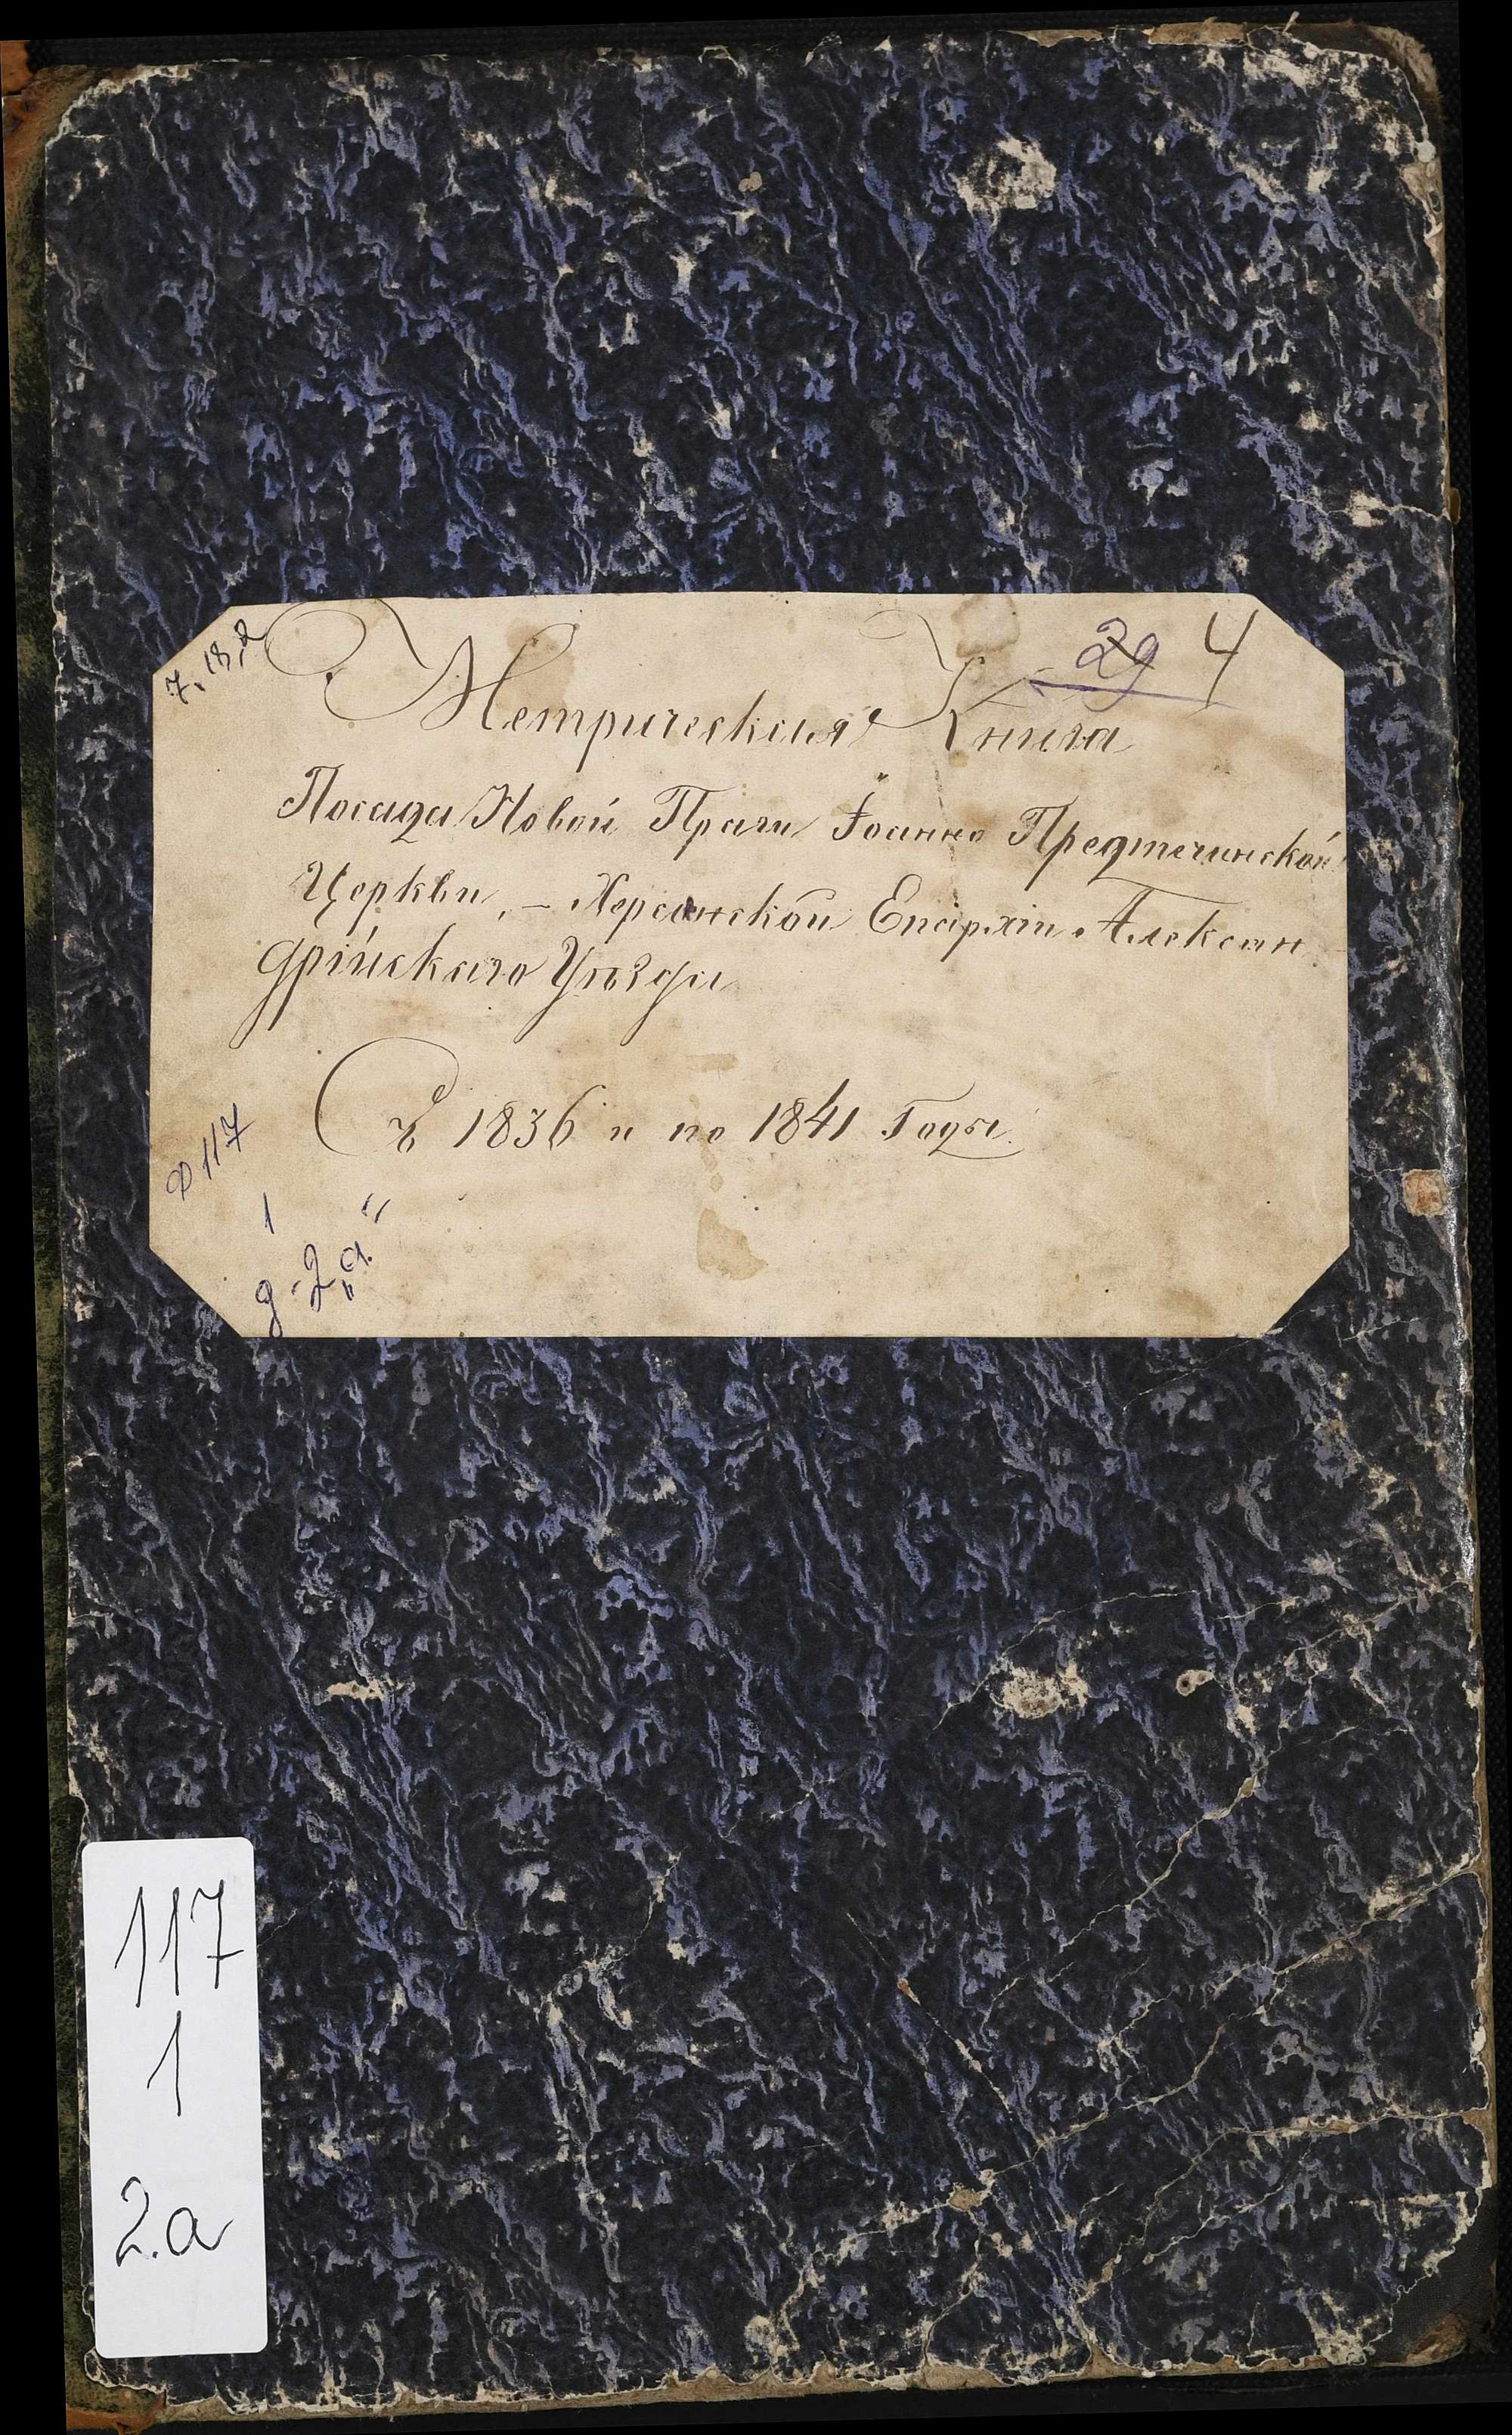 7.18,2
29 4
Метрическая Книга
Посада Новой Праги Іоанно Предтечинской
Церкви, – Херсонской Епархіи Алексан
дрійскаго Уѣзда
Съ 1836 и по 1841 Годы.
Ф 117
1
д-2„а"
117
1
2.а